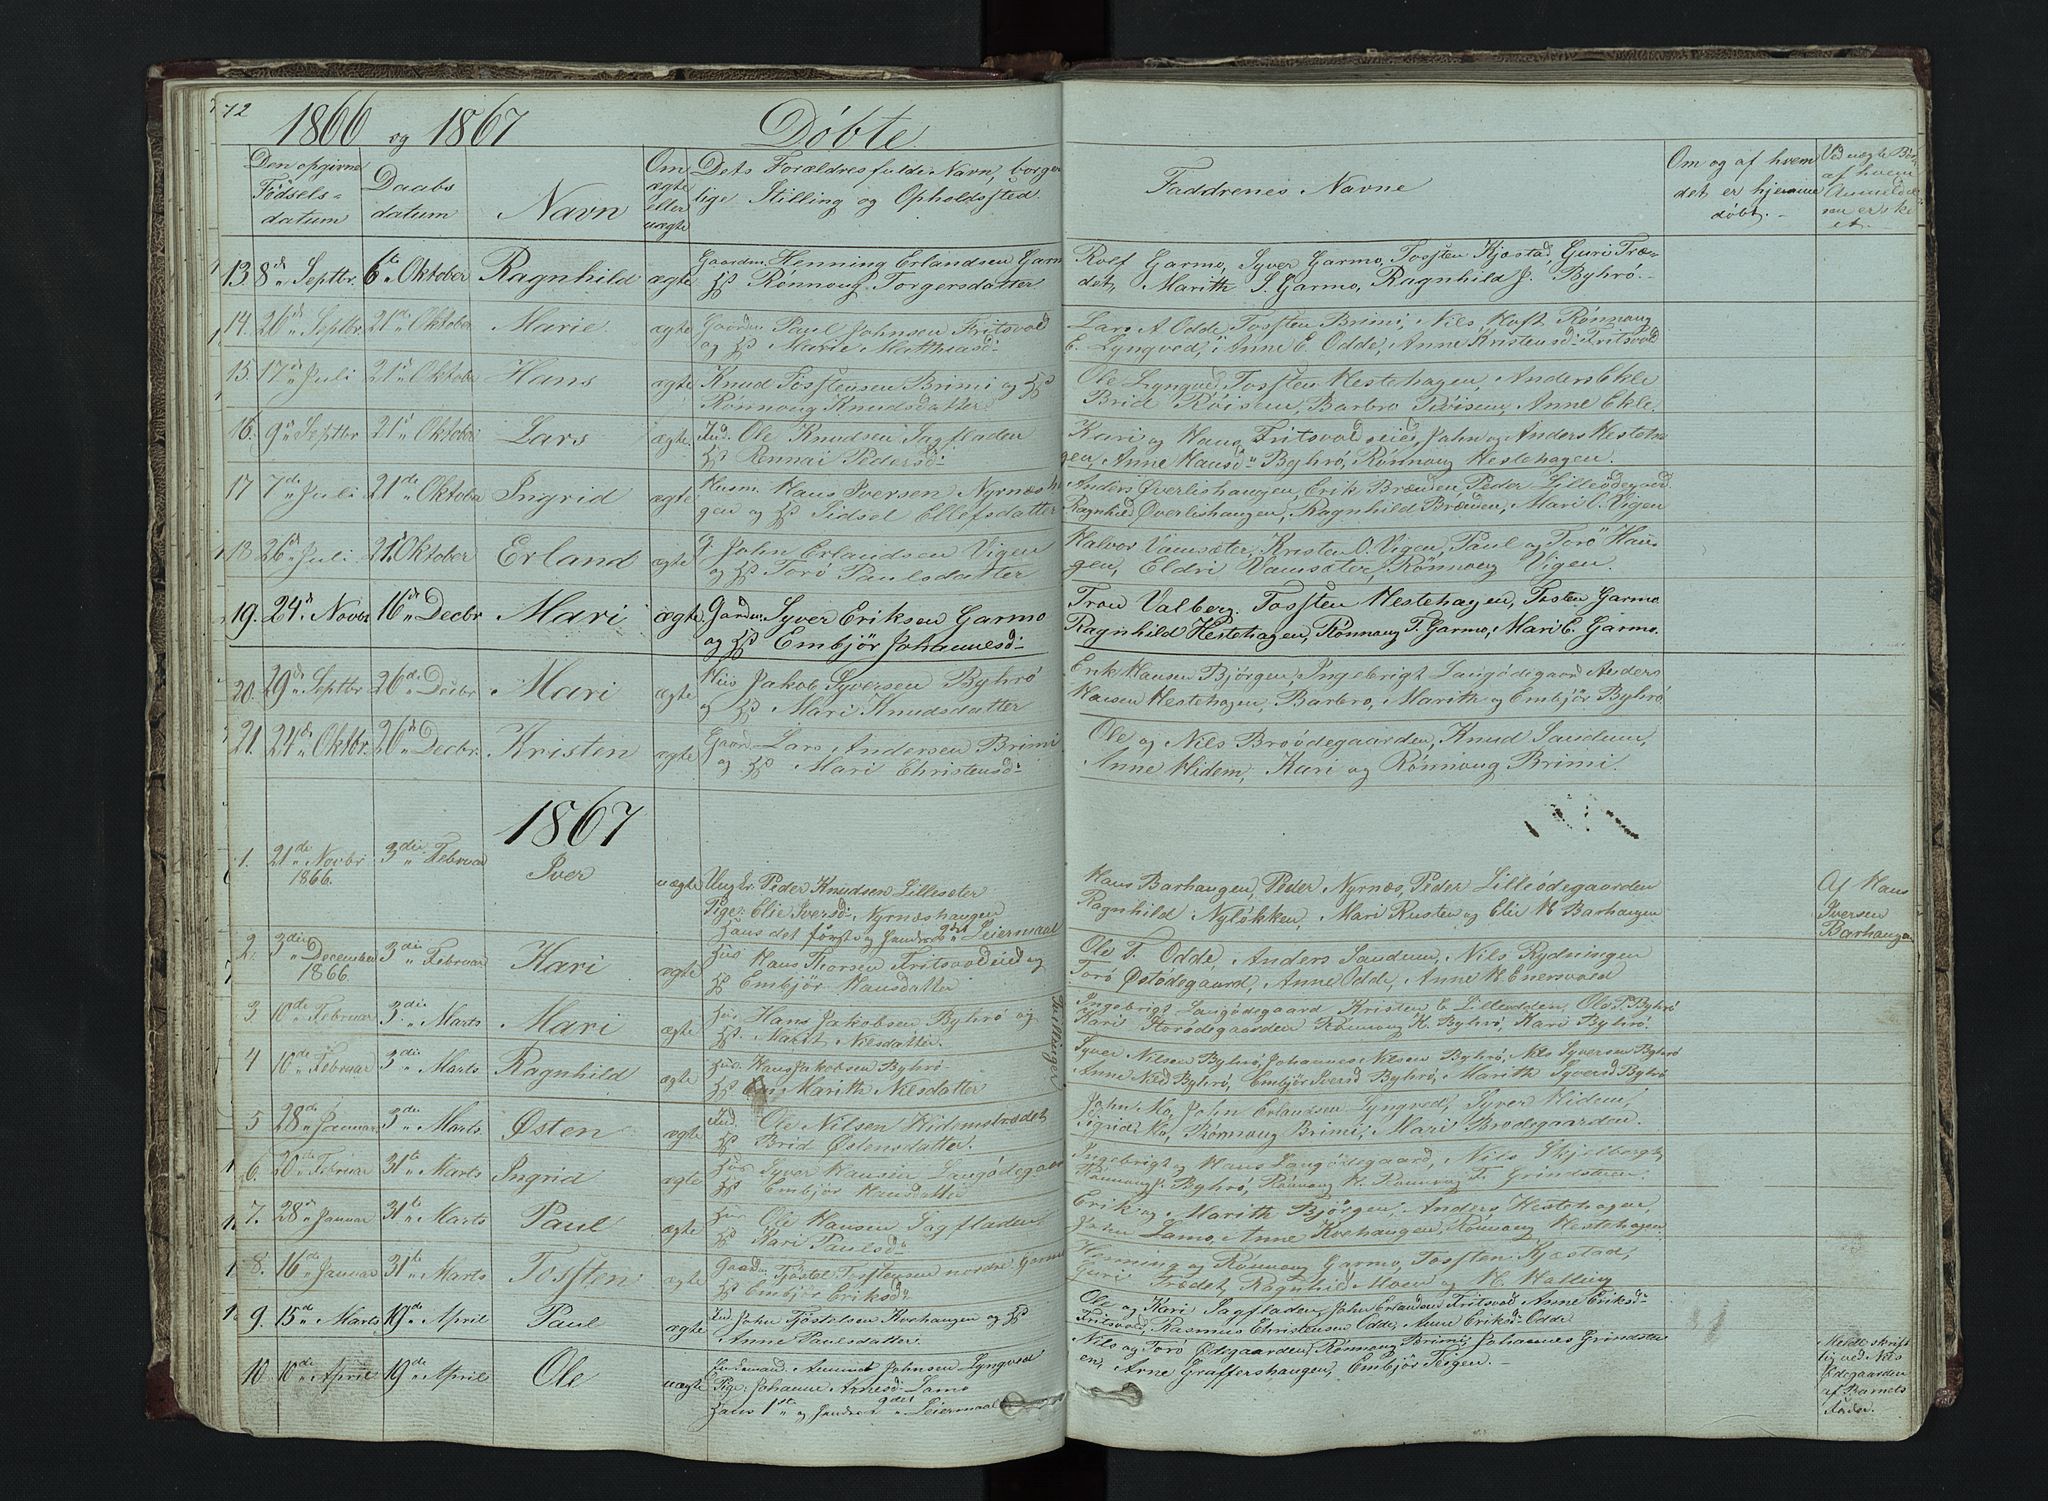 72
1866 og 1867 Døbte.
Den opgivne Fødsels-datum
Daabs datum
Navn
Om ægte eller uægte
Dets Forældres fulde Navn, borger
lige Stilling og Opholdssted.
Faddrenes Navne
Om og af hvem det er hjemme døbt.
Ved uægte Bør af hvem Anmeldel en er ske et.
13. 8de Septbr. 6te Oktober Ragnhild ægte Gaardm. Henning Erlandsen Garm
Hs Rønnoug Torgersdatter
Rolf Garmo, Syver Garmo, Tosten Kjæstad, Guri Træ-
det, Marith S. Garmo, Ragnhild J. Byhrø.
14. 26de Septbr. 21de Oktober Marie ægte Gaardm. Paul Johnsen Fritsvold
og Hs Marie Mathiasd:
Lars A Odde, Tosten Brimi, Nils Hoft Rønnoug
E. Lyngved, Anne E. Odde, Anne Kristensd: Fritsvold
15. 17de Juli 21de Oktober Hans ægte Knud Tostensen Brimi og Hs
Rønnoug Knudsdatter
Ole Lyngved, Tosten Hestehagen, Anders Ekle
Brid Røisen, Barbro Røisen, Anne Ekle.
16. 9de Septbr 21de Oktober Lars ægte. Ind. Ole Knudsen Sagfladen
Hs Rennai Pedersd:
Kari og Hans Fritsvoldseied, John og Anders Hesteha
gen, Anne Hansd: Byhrø, Rønnoug Hestehagen.
17 7de Juli 21de Oktober Ingrid ægte Husm. Hans Iversen Nyrnæsha
gen og Hs Sidsel Ellefsdatter
Anders Øverlishaugen, Erik Bræuden, Peder Lilleødegaard
Ragnhild Øverlishaugen, Ragnhild Bræuden, Mari O. Vigen
18. 26de Juli 21de Oktober Erland ægte G. John Erlandsen Vigen
og Hs Torø Paulsdatter
Halvor Vamsæter, Kristen O. Vigen, Paul og Torø Hau
gen, Eldri Vamsæter, Rønnoug Vigen.
19. 24de Novbr 16de Decbr Mari ægte Gardm. Syver Eriksen Garmo
og Hs Embjør Johannesd:
Tron Valberg. Tosten Hestehagen, Tosten Garmo
Ragnhild Hestehagen, Rønnoug T. Garmo, Mari E. Garmo.
20. 29de Septbr 26de Decbr Mari ægte Jakob Syversen Byhrø
og Hs Mari Knudsdatter
Erik Hansen Bjørgen, Ingebrigt Langødegaard Anders
Hansen Hestehagen, Barbro, Marith og Embjør Byhrø
21. 24de Oktbr. 26de Decbr. Kristen ægte Gaard. Lars Andersen Brimi
og Hs Mari Christensd:
Ole og Nils Broødegaarden, Knud Sandum,
Anne Hidem, Kari og Rønnoug Brimi.
1867
1. 21de Novbr 1866. 3die Februar Iver uægte Ungkr. Peder Knudsen Lillesæter
Pige: Elie Iversd: Nyrnæshaugen
Hans det første og hendes 2det Leiermaal
Hans Barhaugen, Peder Nyrnæs, Peder Lilleødegaarden
Ragnhild Nyløkken, Mari Rusten og Elie H Barhaugen
Af Hans Iversen Barhaugen
2. 3die December 1866 3die Februar Kari ægte Hans Thorsen Fritsvoldeied og
Hs Embjør Hansdatter
Ole T. Odde, Anders Sandum, Nils Rydningen
Torø Østødegaard, Anne Odde, Anne H Enersvold
3. 10de Februar 3die Marts Mari ægte Hans Jakobsen Byhrø og
Hs. Marit Nilsdatter.
Tvillinger
Ingebrigt Langødegaard Kristen E. Lilleødden, Ole P. Byhrø
Kari Storødegaarden Rønnoug K. Byhrø, Kari Byhrø.
4 10de Februar 3die Marts Ragnhild ægte Hans Jakobsen Byhrø
Hs Marith Nilsdatter
Syver Nilsen Byhrø, Johannes Nilsen Byhrø, Nils Syversen Byhrø
Anne Nilsd Byhrø, Embjør Iversd Byhrø, Marith Syversd Byhrø
5 28de Januar 3die Marts Østen ægte Ind. Ole Nilsen Hidemstrædet
Hs Brid Østensdatter.
John Mo, John Erlandsen Lyngved, Syver Hidem,
Sigrid Mo, Rønnoug Brimi, Mari Brodegaarden.
6. 20de Februar 31te Marts Ingrid ægte Syver Hansen Langødegaar
Hs Embjør Hansdatter
Ingebrigt og Hans Langødegaard, Nils Skjelbergt
Rønnoug J. Byhrø, Rønnoug H. Rønnoug F. Grindsteen.
7. 28de Januar 31te Marts Paul ægte Ole Hansen Sagfladen
Hs Kari Paulsd:
Erik og Marith Bjørgen, Anders Hestehagen,
John Lamo, Anne Kvehaugen, Rønnoug Hestehagen.
8. 16de Januar 31te Marts Tosten ægte Gaardm. Fjøstel Tostensen nordre Garmo
Hs Embjør Eriksd:
Henning og Rønnoug Garmo, Tosten Kjæstad,
Guri Trædet, Ragnhild Moen og H. Halling
9. 15de Marts 19de April Paul ægte Ind John Fjøstelsen Kvehaugen og Hs
Anne Paulsdatter
Ole og Kari Sagfladen, John Erlandsen Fritsvold Anne Eriksd:
Fritsvold, Rasmus Christensen Odde, Anne Eriksd: Odde
10. 10de April 19de April Ole uægte Inderstmand. Amund Johnsen Lyngved
Pige. Johanne Arnesd: Lamo
Hans 1ste og hendes 2det Leiermaal
Nils og Torø Ødegaarden, Rønnoug Brimi, Johannes Grindste
en, Arne Graffershaugen, Embjør Teigen.
Meldt skrift lig ved Nils Ødegaarden af Barnets Fader.